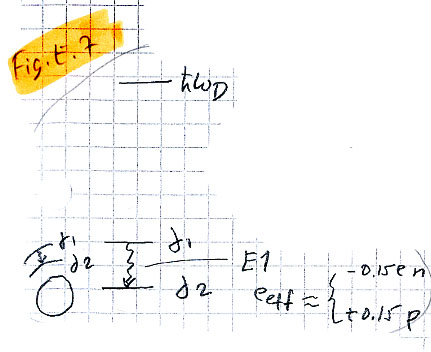 Fig. E. 7
ħω_D
j1
j2
j1
j2
E1
e_eff ≈ { -0.15e n
+0.15 p